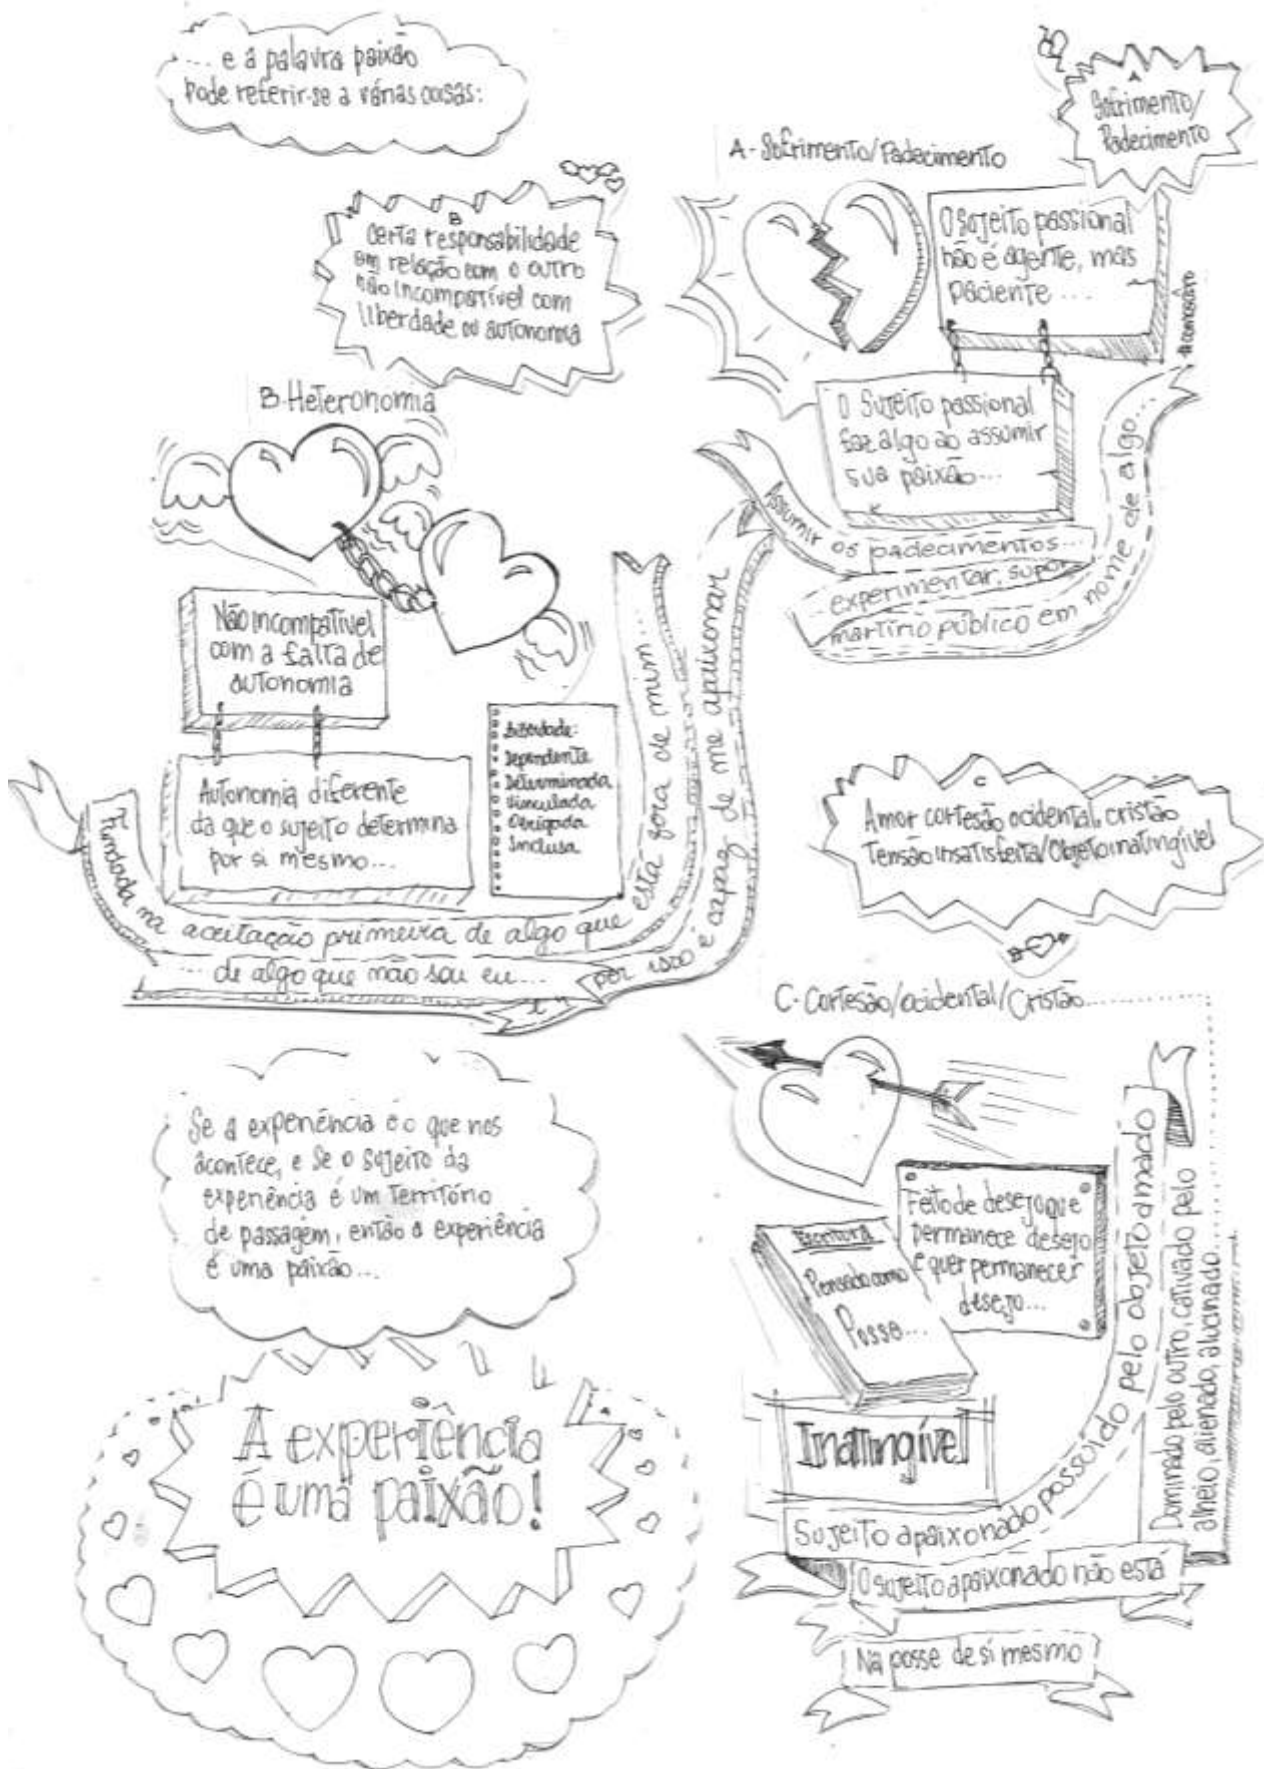 ... e a palavra paixão
pode referir-se a várias coisas:
A
Sofrimento/
Padecimento
A - Sofrimento/Padecimento
O sujeito passional
não é agente, mas
paciente...
O sujeito passional
faz algo ao assumir
sua paixão...
Assumir os padecimentos...
experimentar, supor
martírio público em nome de algo...
B
Certa responsabilidade
em relação com o outro
não incompatível com
liberdade ou autonomia
B-Heteronomia
Não incompatível
com a falta de
autonomia
Autonomia diferente
da que o sujeito determina
por si mesmo...
Liberdade:
Dependente
Determinada
Vinculada
Obrigada
Inclusa
Fundada na aceitação primeira de algo que está fora de mim...
... de algo que não sou eu...
por isso é capaz de me apaixonar
C
Amor cortesão ocidental, cristão
Tensão insatisfeita/Objeto inatingível
C-Cortesão/ocidental/Cristão
Feito de desejo que
permanece desejo
e quer permanecer
desejo...
Escritura
Pensado como
Posse...
Inatingível
Sujeito apaixonado possuído pelo objeto amado
Dominado pelo outro, cativado pelo
alheio, alienado, alucinado...
O sujeito apaixonado não está
Na posse de si mesmo
Se a experiência é o que nos
acontece, e se o sujeito da
experiência é um território
de passagem, então a experiência
é uma paixão...
A experiência
é uma paixão!